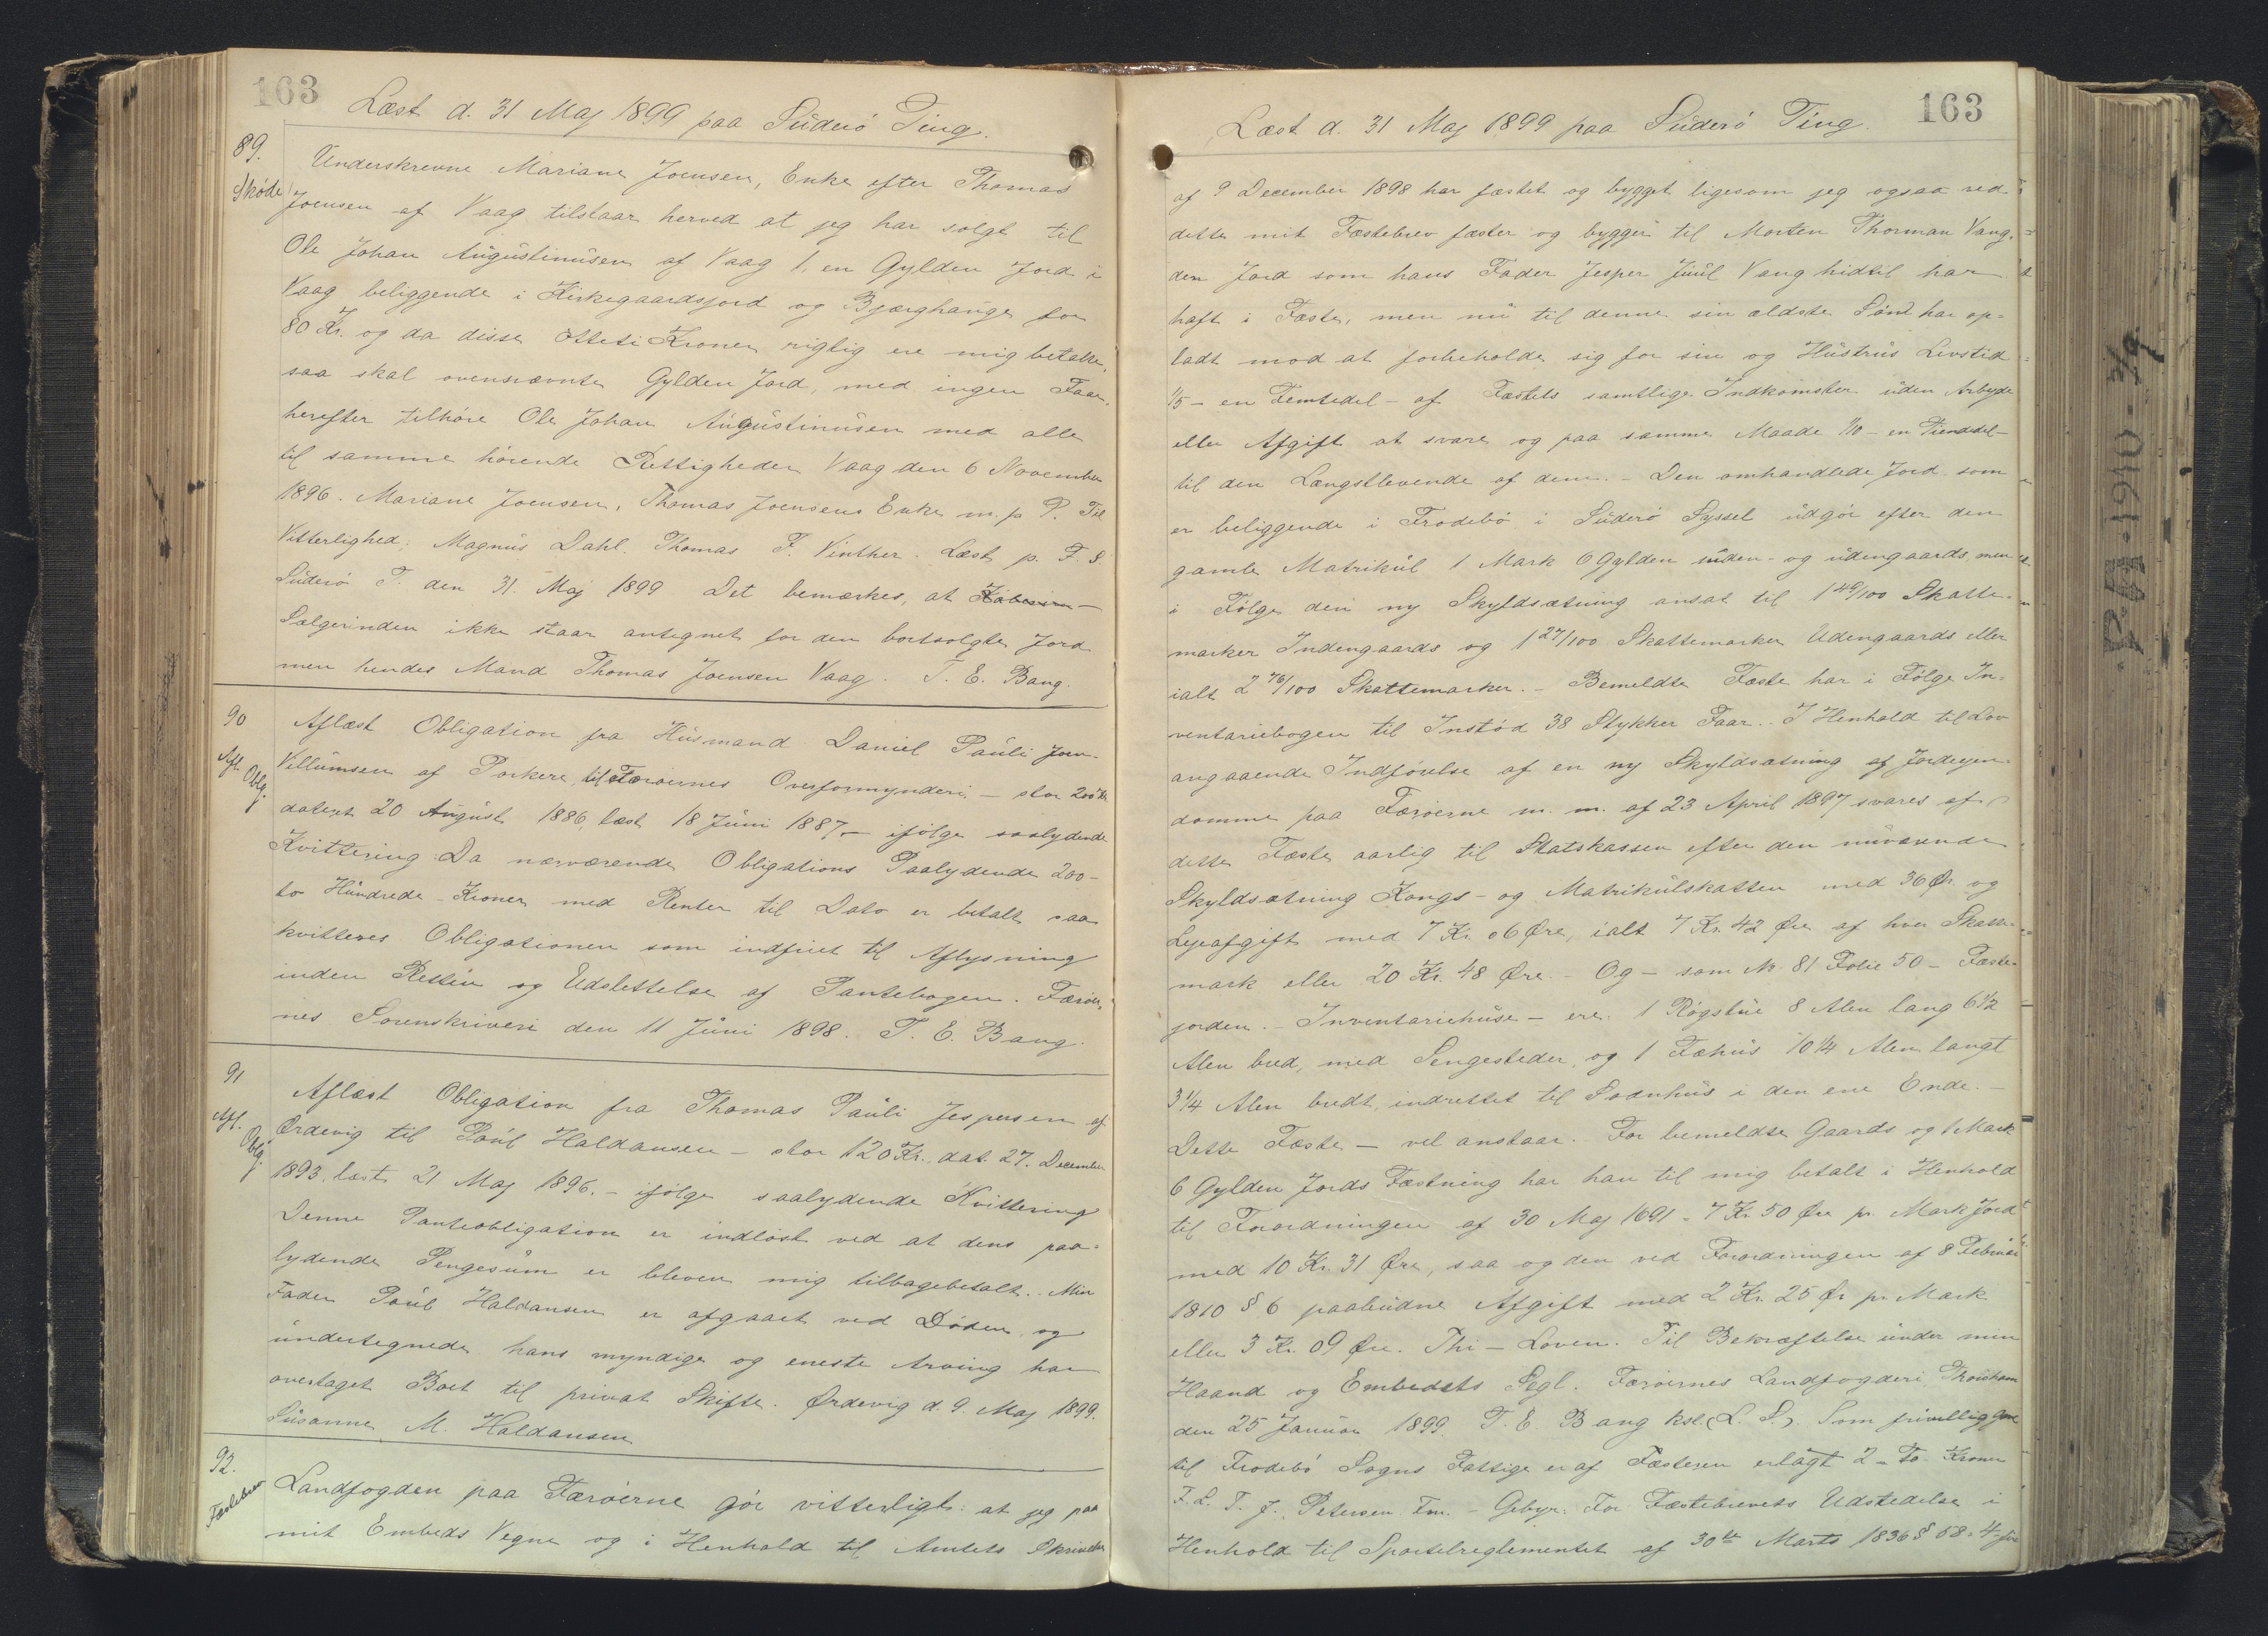 163
Læst d. 31 Maj 1899 paa Süderö Ting.
89.
Skøde
Underskrevne Mariane Joensen, Enke efter Thomas
Joensen af Vaag tilstaar herved at jeg har solgt til
Ole Johan Augustinusen af Vaag 1, en Gylden Jord i
Vaag beliggende i Kirkegaardsjord og Bjærghauge for
80 Kr. og da disse Otteti Kroner rigtig ere mig betalte,
saa skal ovennævnte Gylden Jord, med ingen Faar,
herefter tilhöre Ole Johan Augustinusen med alle
til samme hörende Rettigheder Vaag den 6 November
1896. Mariane Joensen, Thomas Joensens Enke m. p. P. Til
Vitterlighed; Magnus Dahl. Thomas F. Vinther. Læst p. F. S.
Süderö T. den 31. Maj 1899 Det bemærkes, at
Sælgerinden ikke staar antegnet for den bortsolgte Jord
men hendes Mand Thomas Joensen Vaag. T. E. Bang.
90
Afl. Oblg.
Aflæst Obligation fra Husmand Daniel Pauli Joen-
Villumsen af Porkere til Færöernes Overformynderi - stor 200 Kr.
dateret 20 August 1886, læst 18 Juni 1887, - ifölge saalydende
Kvittering: Da nærværende Obligations Paalydende 200 -
to Hundrede - Kroner med Renter til Dato er betalt saa
kvitteres Obligationen som indfriet til Aflysning
inden Retten og Udslettelse af Pantebogen. Færöer-
nes Sorenskriveri den 11 Juni 1898. T. E. Bang.
91
Afl. Oblg.
Aflæst Obligation fra Thomas Pauli Jespersen af
Ørdevig til Poul Haldansen - stor 120 Kr. dat. 27. December
1893, læst 21 Maj 1896. - ifölge saalydende Kvittering
Denne Panteobligation er indlöst ved at dens paa-
lydende Pengesum er bleven mig tilbagebetalt. Min
Fader Poul Haldansen er afgaaet ved Döden og
undertegnede hans myndige og eneste Arving har
overtaget Boet til privat Skifte. Ørdevig d. 9. Maj 1899.
Susanne M. Haldansen
92.
Fæstebrev
Landfogden paa Færöerne gör vitterligt: at jeg paa
mit Embeds Vegne og i Henhold til Amtets Skrivelse
163
Læst d. 31 Maj 1899 paa Süderö Ting.
af 9 December 1898 har fæstet og bygget ligesom jeg ogsaa ved
dette mit Fæstebrev fæster og bygger til Morten Thorman Vang,
den Jord som hans Fader Jesper Juul Vang hidtil har
haft i Fæste, men nu til denne sin ældste Sönd har op-
ladt mod at forbeholde sig for sin og Hustrus Livstid
1/5 - en Femtedel - af Fæstets samtlige Indkomster uden Arbejde
eller Afgift at svare og paa samme Maade 1/10 - en Tiendedel -
til den Længstlevende af dem. - Den omhandlede Jord som
er beliggende i Frodebö i Süderö Syssel udgör efter den
gamle Matrikul 1 Mark 6 Gylden inden- og udengaards, men
i Fölge den ny Skyldsætning ansat til 1 49/100 Skatte-
marker Indengaards og 1 27/100 Skattemarker Udengaards eller
ialt 2 76/100 Skattemarker. - Bemeldte Fæste har i Fölge In-
ventariebogen til Instöd 38 Stykker Faar. I Henhold til Lov
angaaende Indförelse af en ny Skyldsætning af Jordejen-
domme paa Færöerne m. m. af 23 April 1897 svares af
dette Fæste aarlig til Statskassen efter den nuværende
Skyldsætning Kongs- og Matrikulskatten med 36 Ør. og
Lejeafgift med 7 Kr. 06 Øre, ialt 7 Kr. 42 Øre af hver Skatte-
mark eller 20 Kr. 48 Øre. - Og - som № 81 Folie 50 - Fæste-
jorden. - Inventariehuse - ere: 1 Rögstue 8 Alen lang 6 1/2
Alen bred, med Sengesteder, og 1 Fæhus 10 1/4 Alen langt
3 1/4 Alen bredt, indrettet til Sodnhus i den ene Ende. -
Dette Fæste - vel anstaar. For bemeldte Gaards og 1 Mark
6 Gylden Jords Fæstning har han til mig betalt i Henhold
til Forordningen af 30 Maj 1691 - 7 Kr. 50 Øre pr. Mark Jord
med 10 Kr. 31 Øre, saa og den ved Forordningen af 8 Februar
1810 § 6 paabudne Afgift med 2 Kr. 25 Ør pr. Mark
eller 3 Kr. 09 Øre. Thi - Loven. Til Bekræftelse under min
Haand og Embedets Segl. Færöernes Landfogderi, Thorshavn
den 25 Januar 1899. T. E. Bang kst. (L. S.). Som frivillig Gave
til Frodebö Sogns Fattige er af Fæsteren erlagt 2 - To - Kroner
F. L. T. J. Petersen Fm. - Gebyr: For Fæstebrevets Udstedelse i
Henhold til Sportelreglementet af 30te Marts 1836 § 68. 4